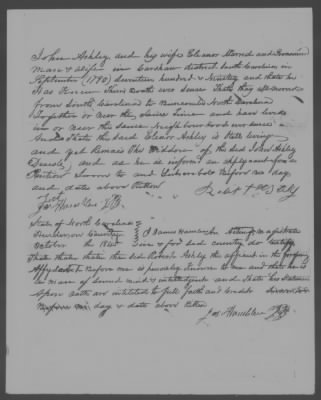 John Ashley and his wife Eleanor Stood and Remained
Man & Wife in Camden district South Carolina in
September (1790) Seventeen hundred & Ninety and that he
has Known Them Both ever sence That they all moved
from South Carolina to Buncombe North Carolina
Together or near the same time and have lived
in or near the same neighborhood ever sence
and that the said Eleanor Ashley is still living
and yet Remains the Widow of the sed John Ashley
Decesd, and as he is informd an applycant for a
Pention Sworn to and Subscribed Before me day
and date above Written
Test
Jas Hamblen JP
Robert Ashly
State of North Carolina
Henderson County
October the 1845
I James Hamblen acting magistrate
in & for sed county do certify
that the sed Robert Ashley the affiant in the forgoing
Affydavit Before me is personaly Known to me and that he is
a man of Sound mind & intelligence and that his Statements
upon oath are intitled to full faith and credit
Before me day & date above Written
Jas Hamblen JP